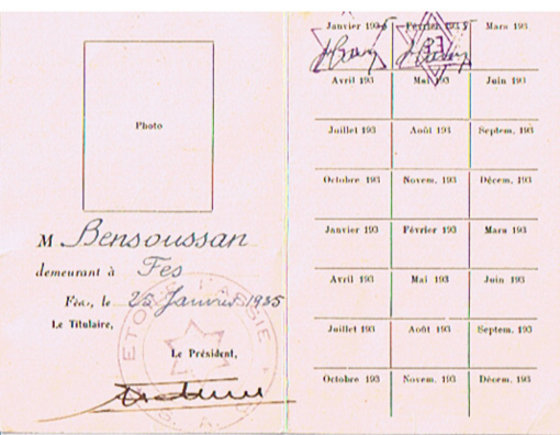 Photo
M Bensoussan
demeurant à Fes
Fès, le 25 Janvier 1935
Le Titulaire,
Le Président,
ETOILE
Janvier 1935 Février 1935 Mars 193
Avril 193 Mai 193 Juin 193
Juillet 193 Août 193 Septem. 193
Octobre 193 Novem. 193 Décem. 193
Janvier 193 Février 193 Mars 193
Avril 193 Mai 193 Juin 193
Juillet 193 Août 193 Septem. 193
Octobre 193 Novem. 193 Décem. 193